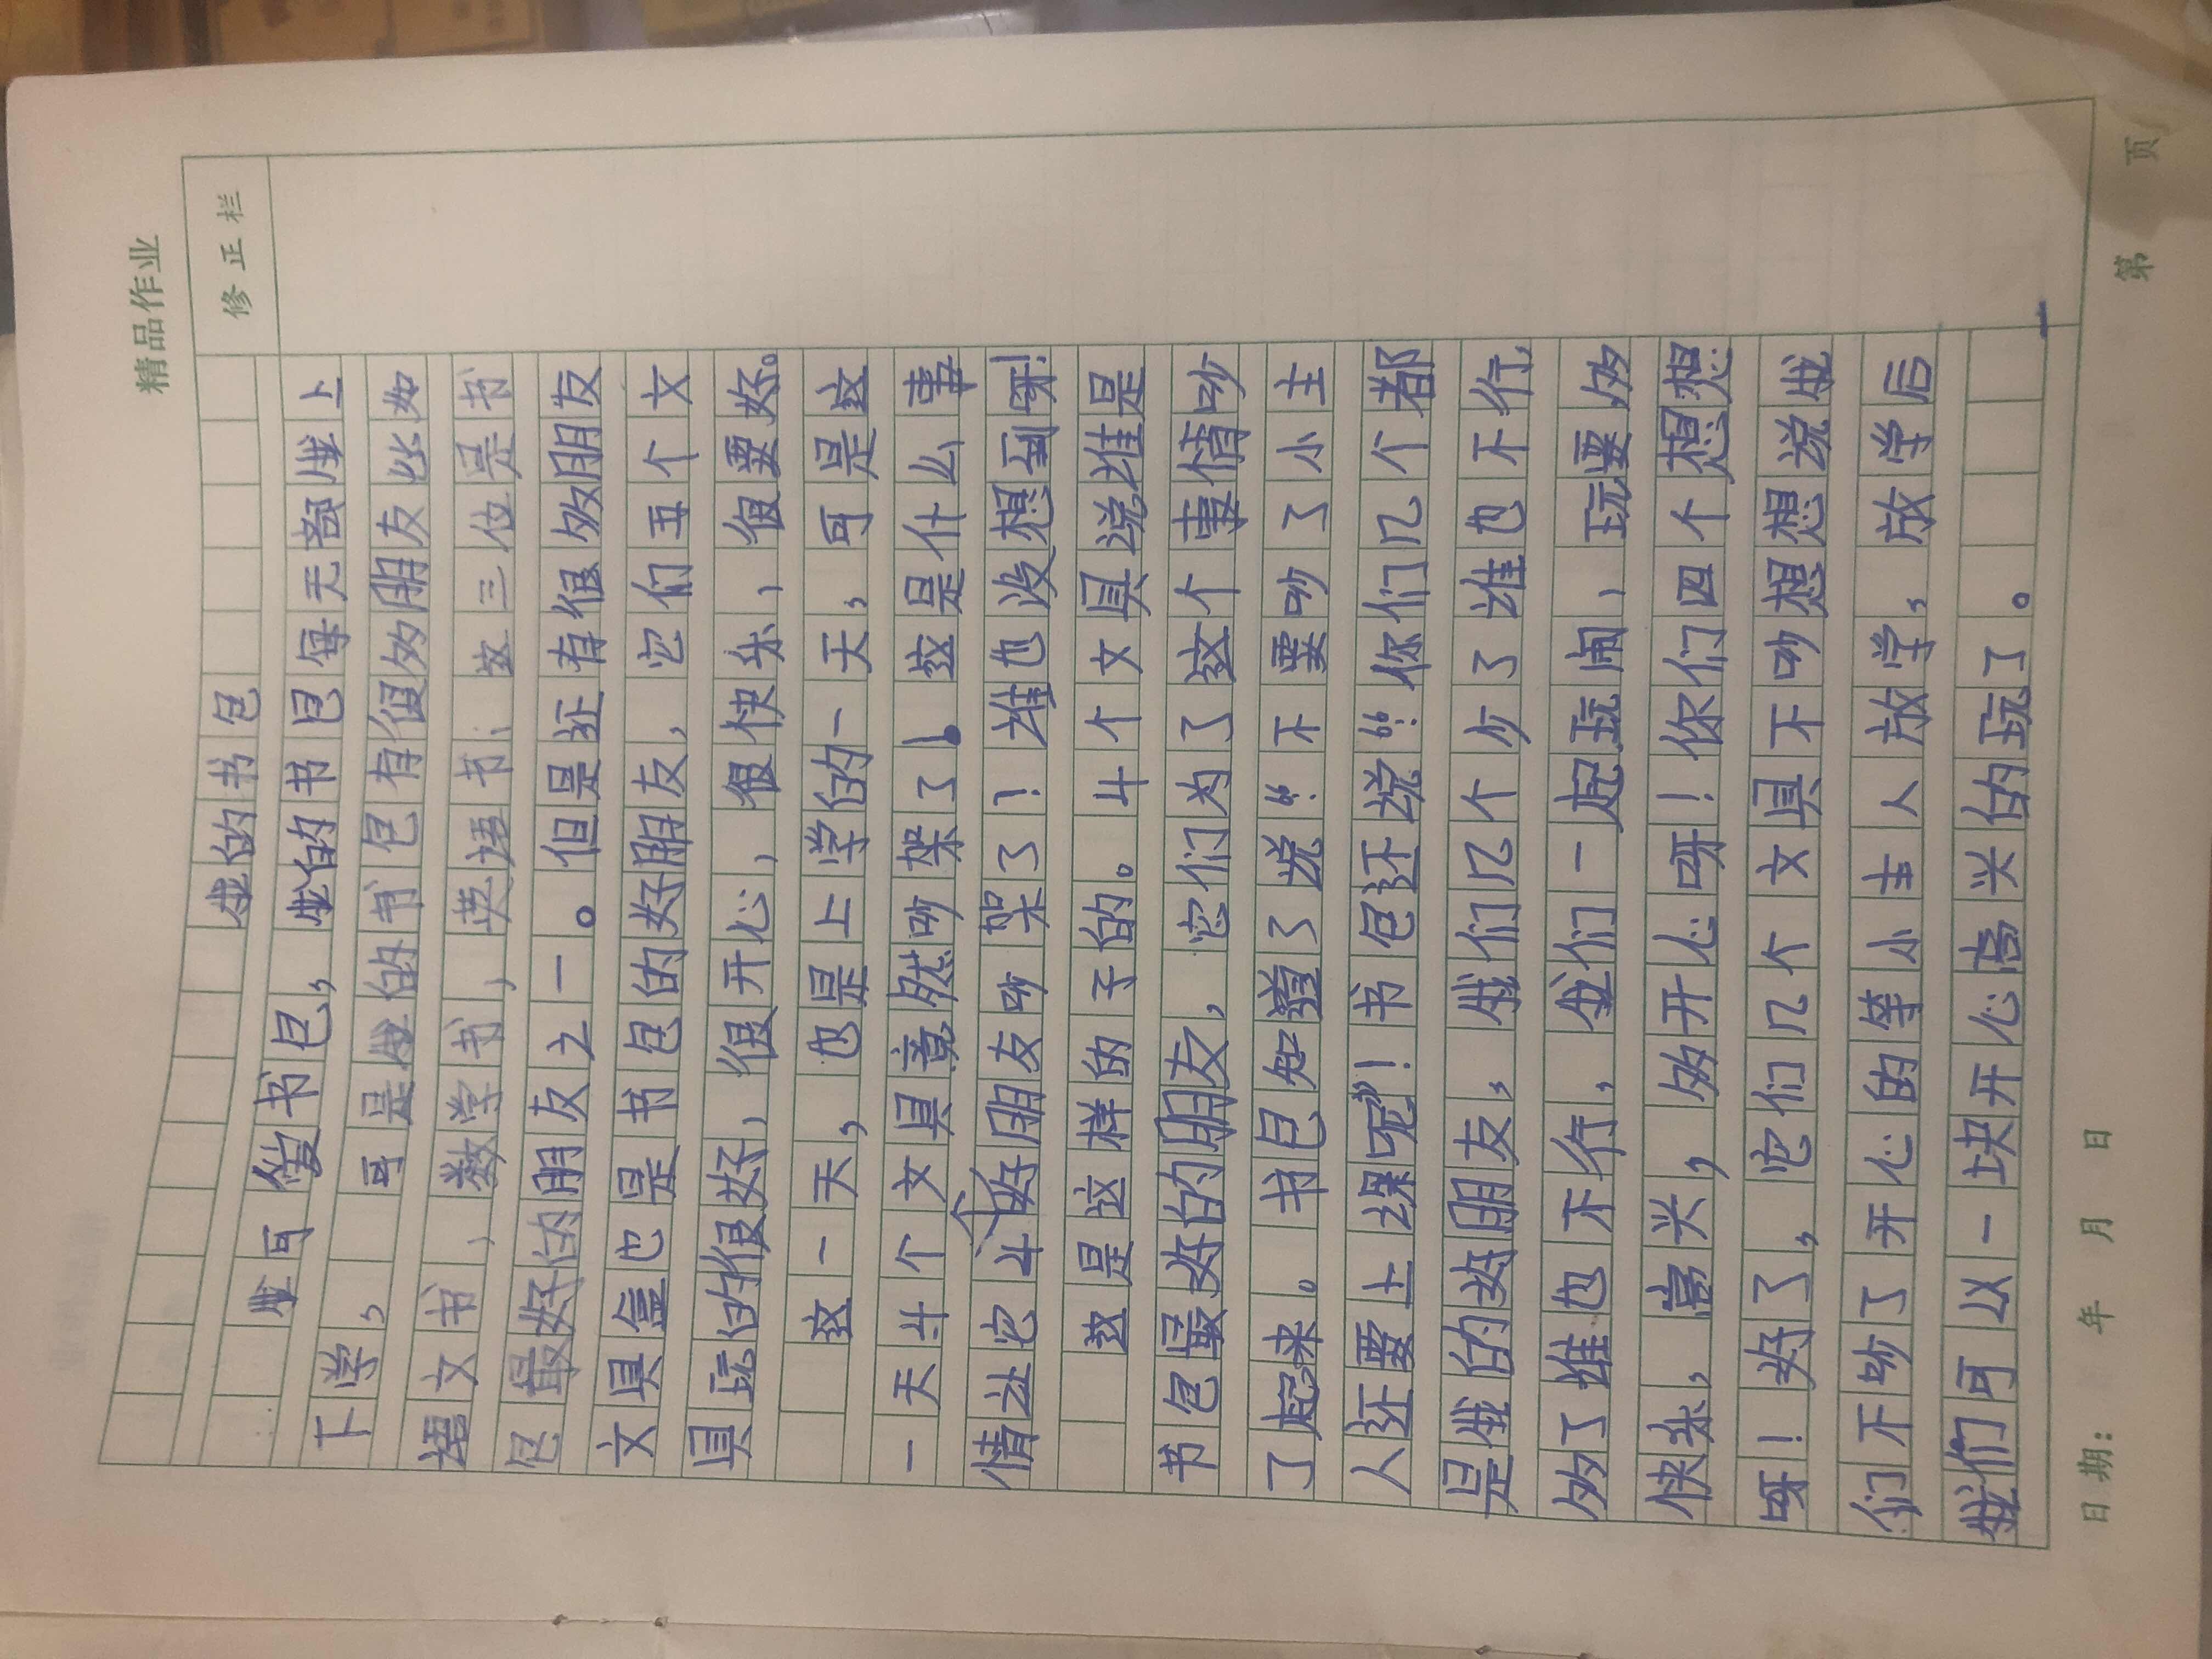 精品作业
修正栏
我的书包
我可爱书包，我的书包每天都背上
下学，可是我的书包有很多朋友比如
语文书、数学书、英语书；这三位是书
包最好的朋友之一。但是还有很多朋友
文具盒也是书包的好朋友，它们五个文
具玩的很好，很开心，很快乐，很要好。
这一天，也是上学的一天，可是这
一天斗个文具竟然吵架了！这是什么事
情让它斗个好朋友吵架了？谁也没想到呀！
这是这样的子的。斗个文具说谁是
书包最好的朋友，它们为了这个事情吵
了起来。书包知道了说：“不要吵了小主
人还要上课呢”！书包还说：“你们几个都
是我的好朋友，我们几个少了谁也不行，
多了谁也不行，我们一起玩闹，玩要多
快乐，高兴，多开心呀！你们四个想想
呀！好了，它们几个文具不吵想想说我
们不吵了开心的等小主人放学，放学后
我们可以一块开心高兴的玩了。
日期： 年 月 日 第 页